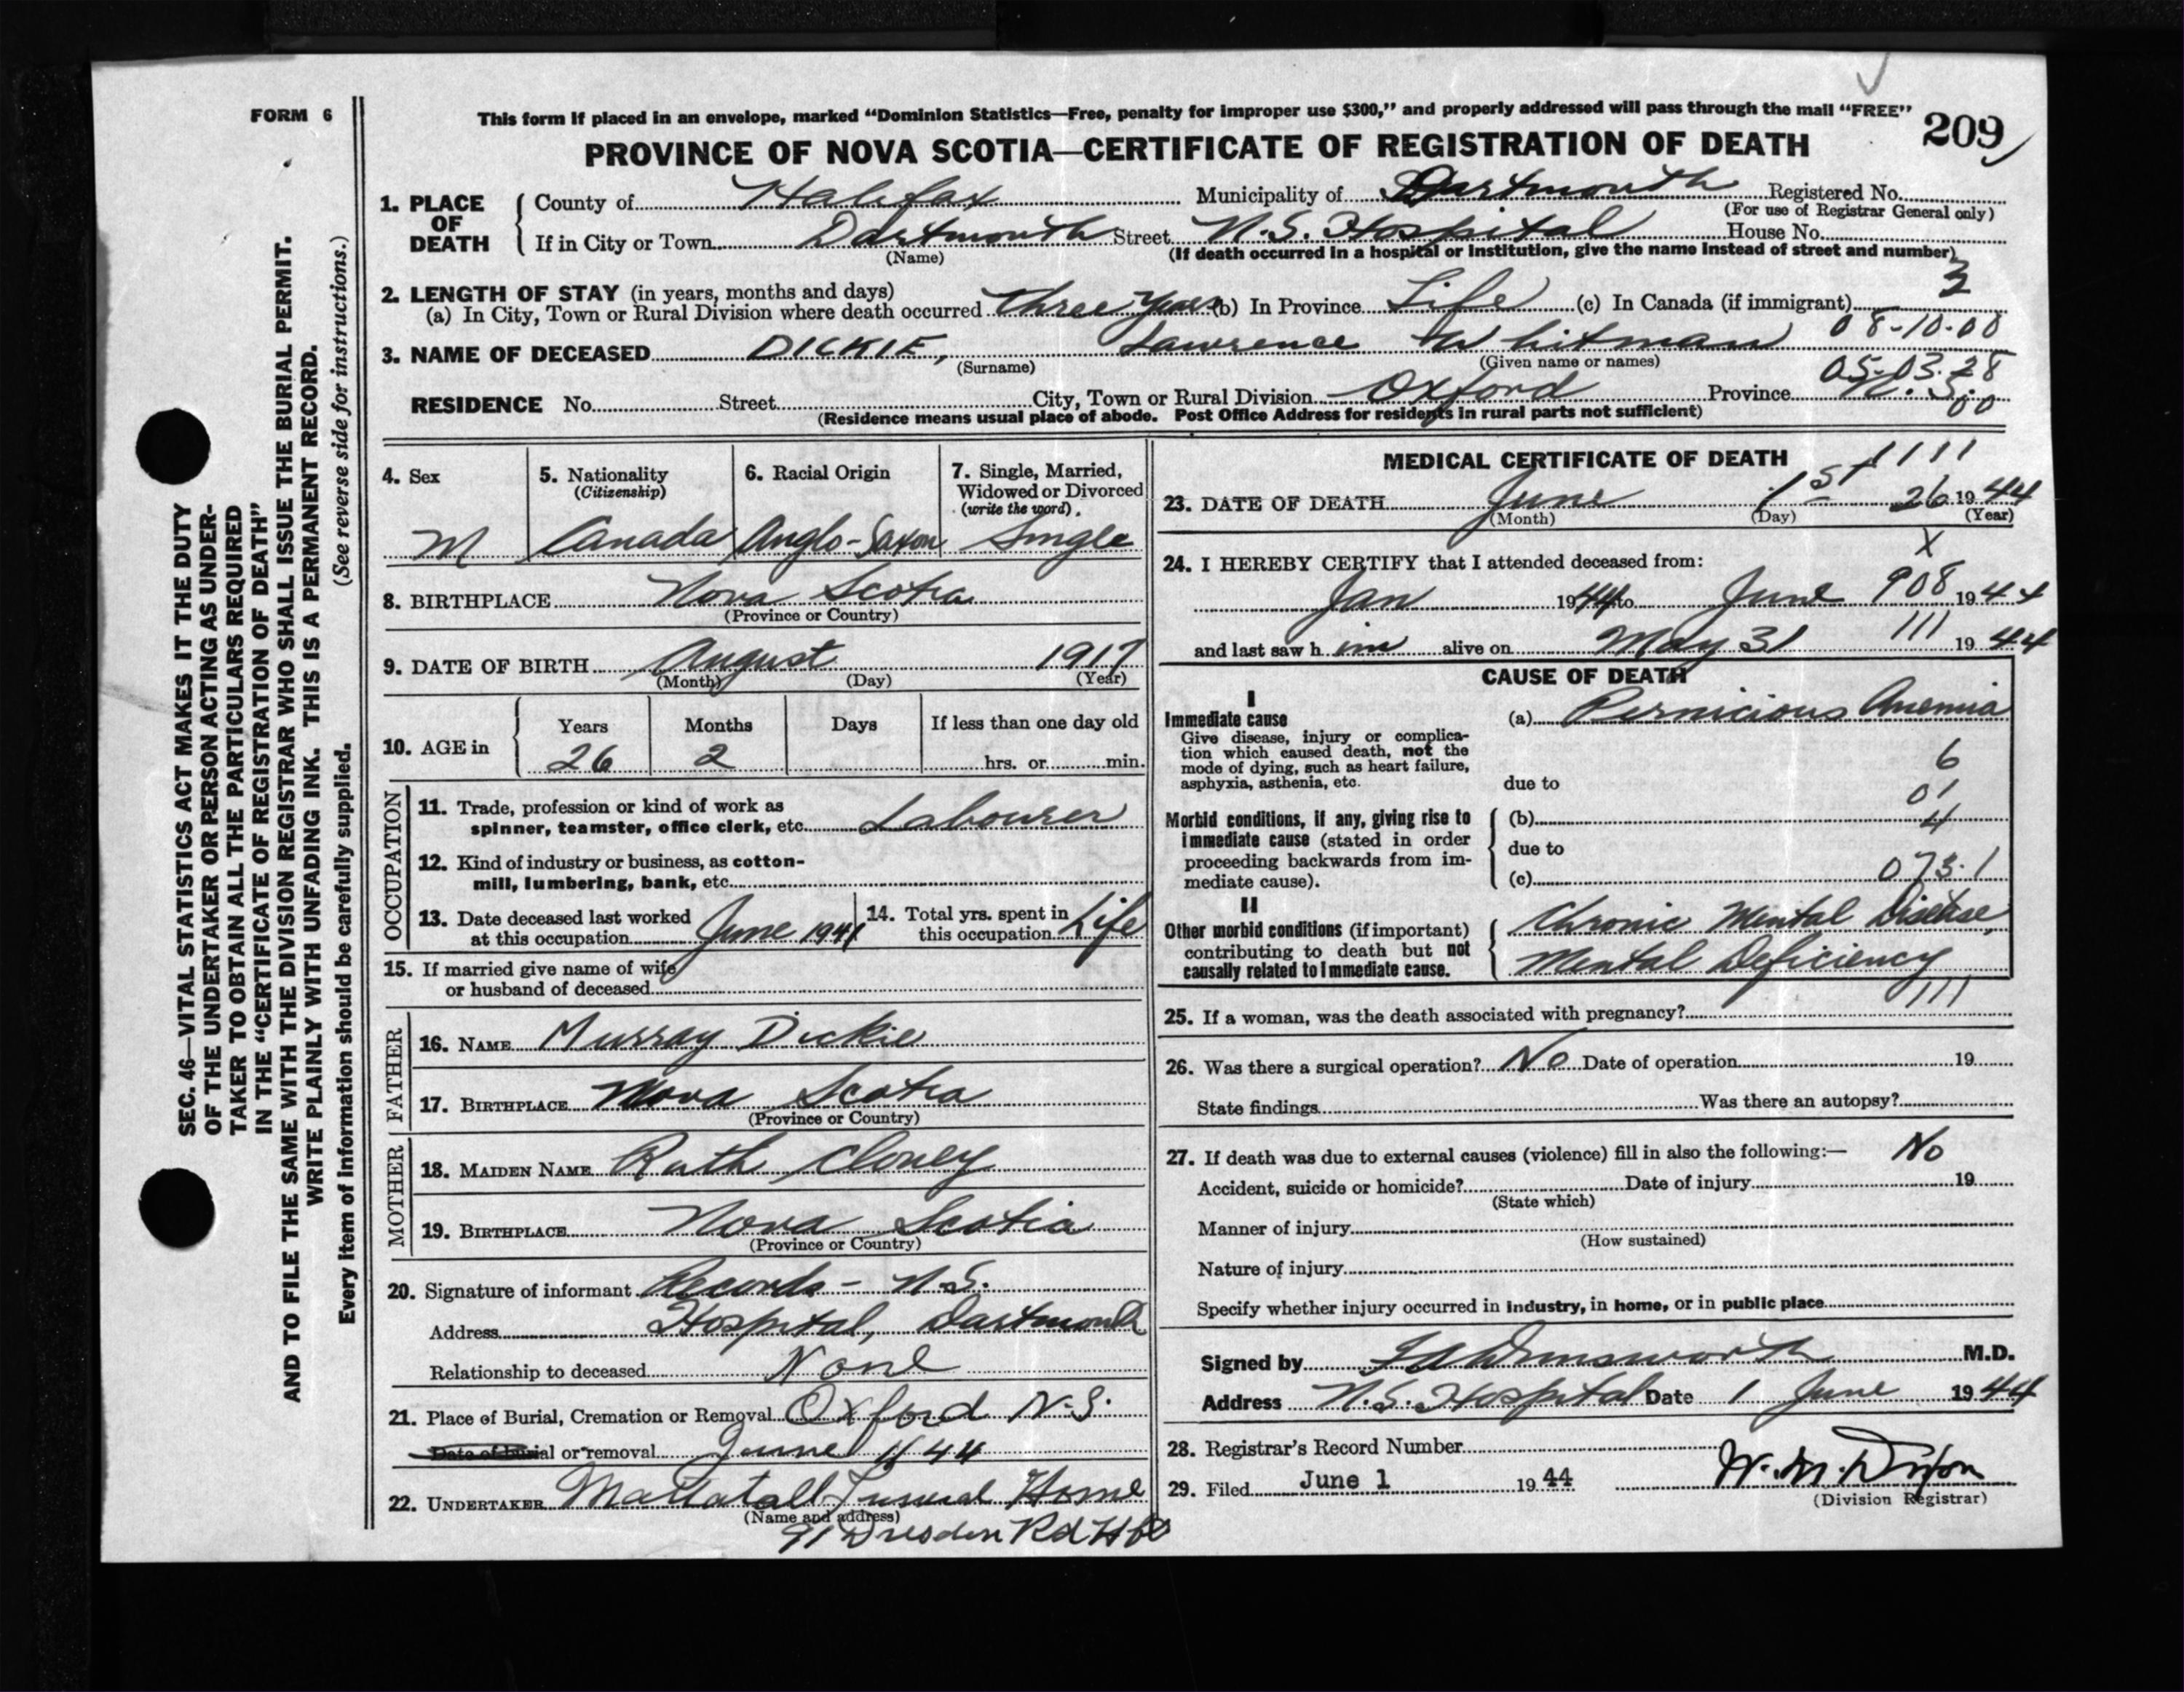 FORM 6
This form if placed in an envelope, marked “Dominion Statistics—Free, penalty for improper use $300,” and properly addressed will pass through the mail “FREE”
209
PROVINCE OF NOVA SCOTIA—CERTIFICATE OF REGISTRATION OF DEATH
SEC. 46—VITAL STATISTICS ACT MAKES IT THE DUTY
OF THE UNDERTAKER OR PERSON ACTING AS UNDER-
TAKER TO OBTAIN ALL THE PARTICULARS REQUIRED
IN THE “CERTIFICATE OF REGISTRATION OF DEATH”
AND TO FILE THE SAME WITH THE DIVISION REGISTRAR WHO SHALL ISSUE THE BURIAL PERMIT.
WRITE PLAINLY WITH UNFADING INK. THIS IS A PERMANENT RECORD.
Every item of information should be carefully supplied. (See reverse side for instructions.)
1. PLACE OF DEATH
County of Halifax Municipality of Dartmouth Registered No.
(For use of Registrar General only)
If in City or Town Dartmouth Street N.S. Hospital House No.
(Name) (If death occurred in a hospital or institution, give the name instead of street and number)
3
2. LENGTH OF STAY (in years, months and days)
(a) In City, Town or Rural Division where death occurred three years (b) In Province Life (c) In Canada (if immigrant)
08-10-00
3. NAME OF DECEASED DICKIE, Lawrence Whitman
(Surname) (Given name or names)
05-03-28
RESIDENCE No. Street City, Town or Rural Division Oxford Province N.S.
00
(Residence means usual place of abode. Post Office Address for residents in rural parts not sufficient)
4. Sex
M
5. Nationality
(Citizenship)
Canada
6. Racial Origin
Anglo-Saxon
7. Single, Married,
Widowed or Divorced
(write the word)
Single
8. BIRTHPLACE Nova Scotia
(Province or Country)
9. DATE OF BIRTH August 1917
(Month) (Day) (Year)
10. AGE in
Years Months Days If less than one day old
26 2 hrs. or min.
OCCUPATION
11. Trade, profession or kind of work as
spinner, teamster, office clerk, etc. Labourer
12. Kind of industry or business, as cotton-
mill, lumbering, bank, etc.
13. Date deceased last worked
at this occupation June 1941
14. Total yrs. spent in
this occupation Life
15. If married give name of wife
or husband of deceased
FATHER
16. NAME Murray Dickie
17. BIRTHPLACE Nova Scotia
(Province or Country)
MOTHER
18. MAIDEN NAME Ruth Cloney
19. BIRTHPLACE Nova Scotia
(Province or Country)
20. Signature of informant Records - N.S.
Address Hospital, Dartmouth
Relationship to deceased None
21. Place of Burial, Cremation or Removal Oxford N.S.
Date of burial or removal June 1/44
22. UNDERTAKER Funeral Home
(Name and address)
91 Dresden Rd Hfx
MEDICAL CERTIFICATE OF DEATH
1111
23. DATE OF DEATH June 1st 26 1944
(Month) (Day) (Year)
X
24. I HEREBY CERTIFY that I attended deceased from:
Jan 1944 to June 908 1944
and last saw h im alive on May 31 111 1944
CAUSE OF DEATH
I
Immediate cause
Give disease, injury or complica-
tion which caused death, not the
mode of dying, such as heart failure,
asphyxia, asthenia, etc.
(a) Pernicious Anemia
6
due to
01
Morbid conditions, if any, giving rise to
immediate cause (stated in order
proceeding backwards from im-
mediate cause).
(b) 4
due to
(c) 073.1
II
Other morbid conditions (if important)
contributing to death but not
causally related to immediate cause.
Chronic Mental Disease,
Mental Deficiency
111
25. If a woman, was the death associated with pregnancy?
26. Was there a surgical operation? No Date of operation 19
State findings Was there an autopsy?
27. If death was due to external causes (violence) fill in also the following:— No
Accident, suicide or homicide? Date of injury 19
(State which)
Manner of injury
(How sustained)
Nature of injury
Specify whether injury occurred in industry, in home, or in public place
Signed by M.D.
Address N.S. Hospital Date 1 June 1944
28. Registrar's Record Number
29. Filed June 1 1944 W. M. Dixon
(Division Registrar)